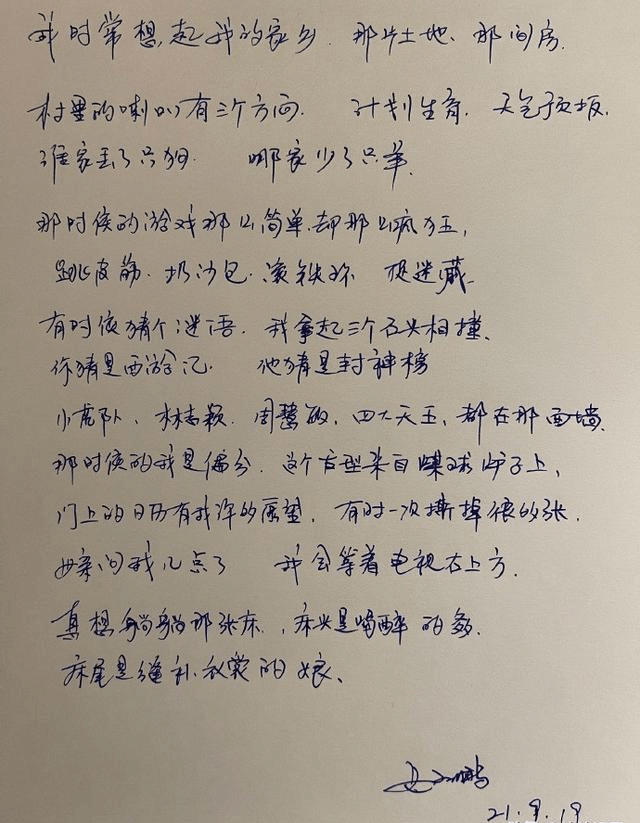 我时常想起我的家乡 那片土地、那间房.
村里的喇叭有三个方向. 计划生育. 天气预报,
谁家丢了只狗. 哪家少了只羊.
那时候的游戏那么简单,却那么疯狂,
跳皮筋. 扔沙包. 滚铁环 捉迷藏.
有时候猜个谜语. 我拿起三个石头相撞.
你猜是西游记. 他猜是封神榜
小虎队、林志颖. 周慧敏, 四大天王, 都在那面墙.
那时候的我是偏分. 这个发型来自煤球炉子上,
门上的日历有我许的愿望, 有时一次撕掉很多张.
母亲问我几点了 我会等着电视右上方.
真想躺躺那张床, 床头是喝醉的爹.
床尾是缝补衣裳的娘、
21.9.19